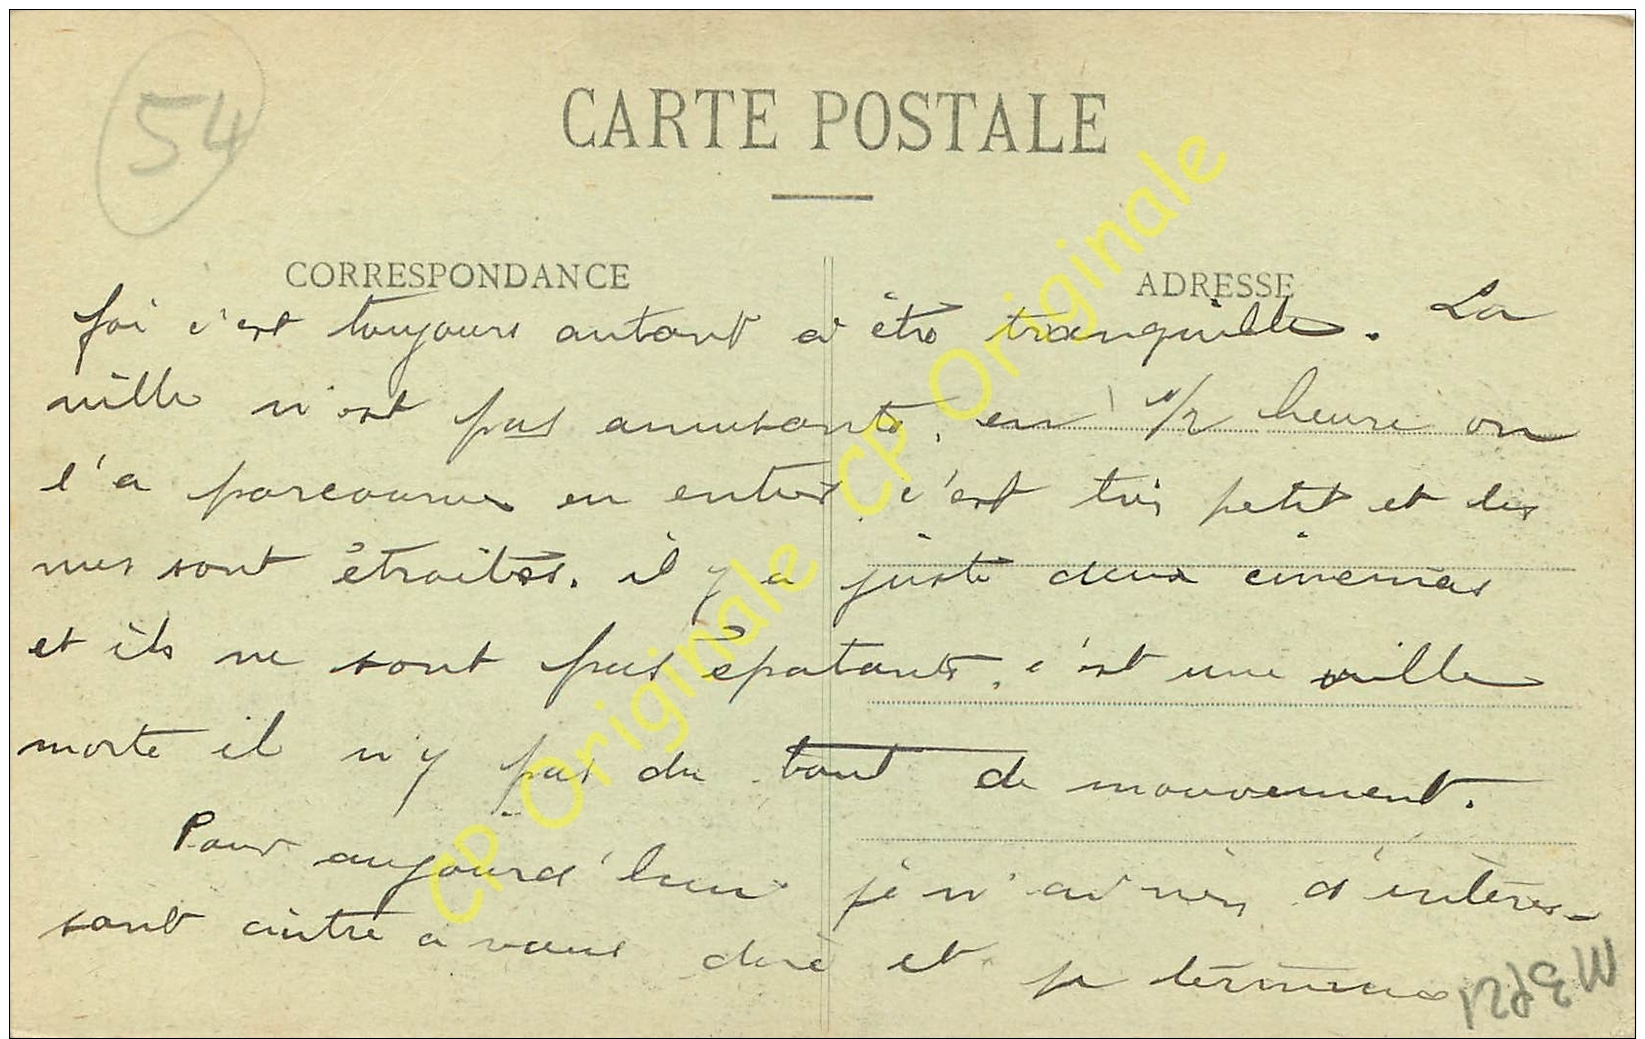 54
CARTE POSTALE
CORRESPONDANCE
ADRESSE
foi c'est toujours autant d'être tranquille. La
ville n'est pas amusante, en 1/2 heure on
l'a parcourue en entier c'est très petit et les
rues sont étroites. il y a juste deux cinémas
et ils ne sont pas épatants, c'est une ville
morte il n'y pas du tout de mouvement.
Pour aujourd'hui je n'ai rien d'intéres-
sant autre a vous dire et je termine
CP Originale CP Originale CP Originale